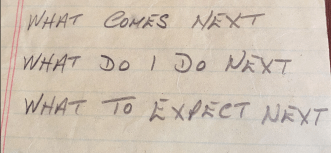 WHAT COMES NEXT
WHAT DO I DO NEXT
WHAT TO EXPECT NEXT